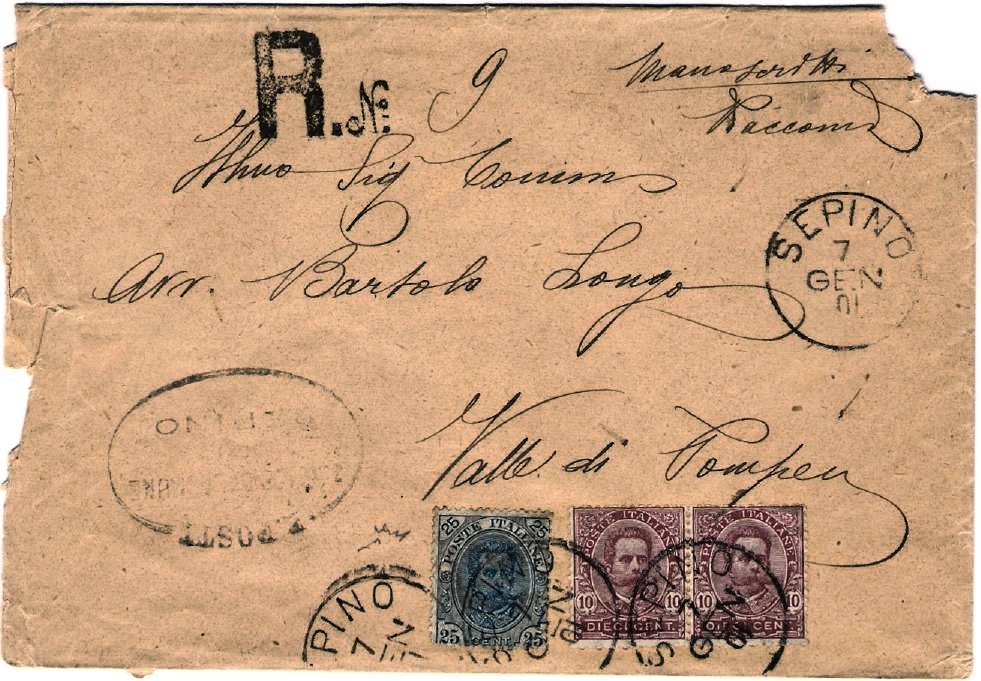 R. No 9 Manoscritti
Raccomd
Illmo Sig Comm
Avv. Bartolo Longo
Valle di Pompei
SEPINO
7
GEN
01
SEPINO
POSTE
25 25
POSTE ITALIANE
25 CENT. 25
POSTE ITALIANE
10 10
DIECI CENT.
POSTE ITALIANE
10 10
DIECI CENT.
PINO
7